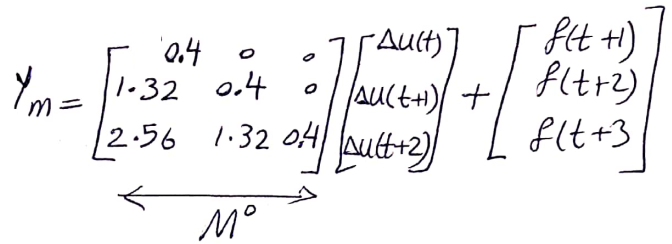 Ym = [0.4 0 0; 1.32 0.4 0; 2.56 1.32 0.4] [Δu(t); Δu(t+1); Δu(t+2)] + [f(t+1); f(t+2); f(t+3]
M°